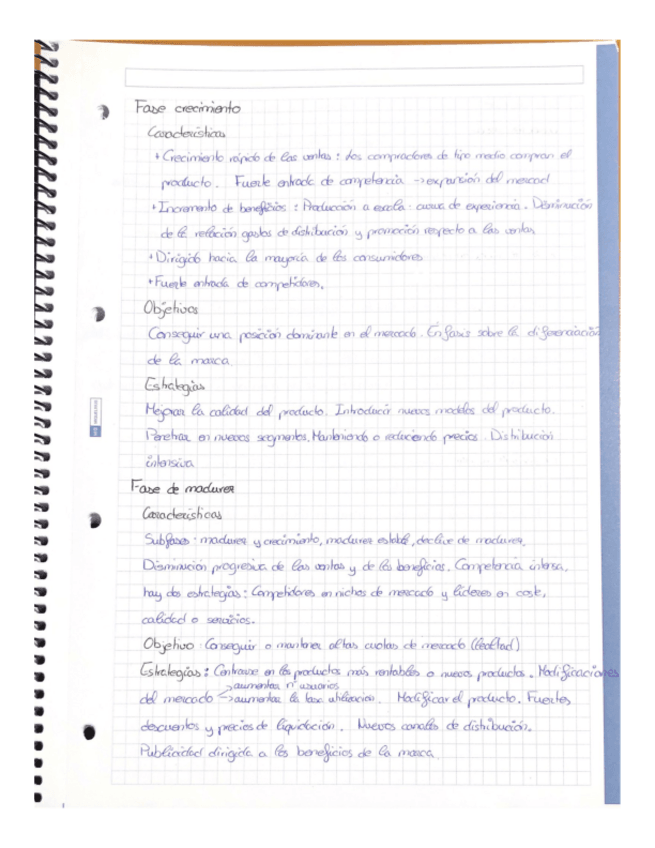 Fase crecimiento
Características
+ Crecimiento rápido de las ventas: los compradores de tipo medio compran el
producto. Fuerte entrada de competencia → expansión del mercad
+ Incremento de beneficios: Producción a escala. curva de experiencia. Disminución
de la relación gastos de distribución y promoción respecto a las ventas
+ Dirigido hacia la mayoría de los consumidores
+ Fuerte entrada de competidores.
Objetivos
Conseguir una posición dominante en el mercado. Énfasis sobre la diferenciación
de la marca
Estrategias
Mejorar la calidad del producto. Introducir nuevos modelos del producto.
Penetrar en nuevos segmentos. Manteniendo o reduciendo precios. Distribución
intensiva
Fase de madurez
Características
Subfases: madurez y crecimiento, madurez estable, declive de madurez.
Disminución progresiva de las ventas y de los beneficios. Competencia intensa,
hay dos estrategias: Competidores en nichos de mercado y líderes en coste,
calidad o servicios.
Objetivo: Conseguir o mantener altas cuotas de mercado (lealtad)
Estrategias: Centrarse en los productos más rentables o nuevos productos. Modificaciones
→ aumentar nº usuarios
del mercado → aumentar la tasa utilización. Modificar el producto. Fuertes
descuentos y precios de liquidación. Nuevos canales de distribución.
Publicidad dirigida a los beneficios de la marca